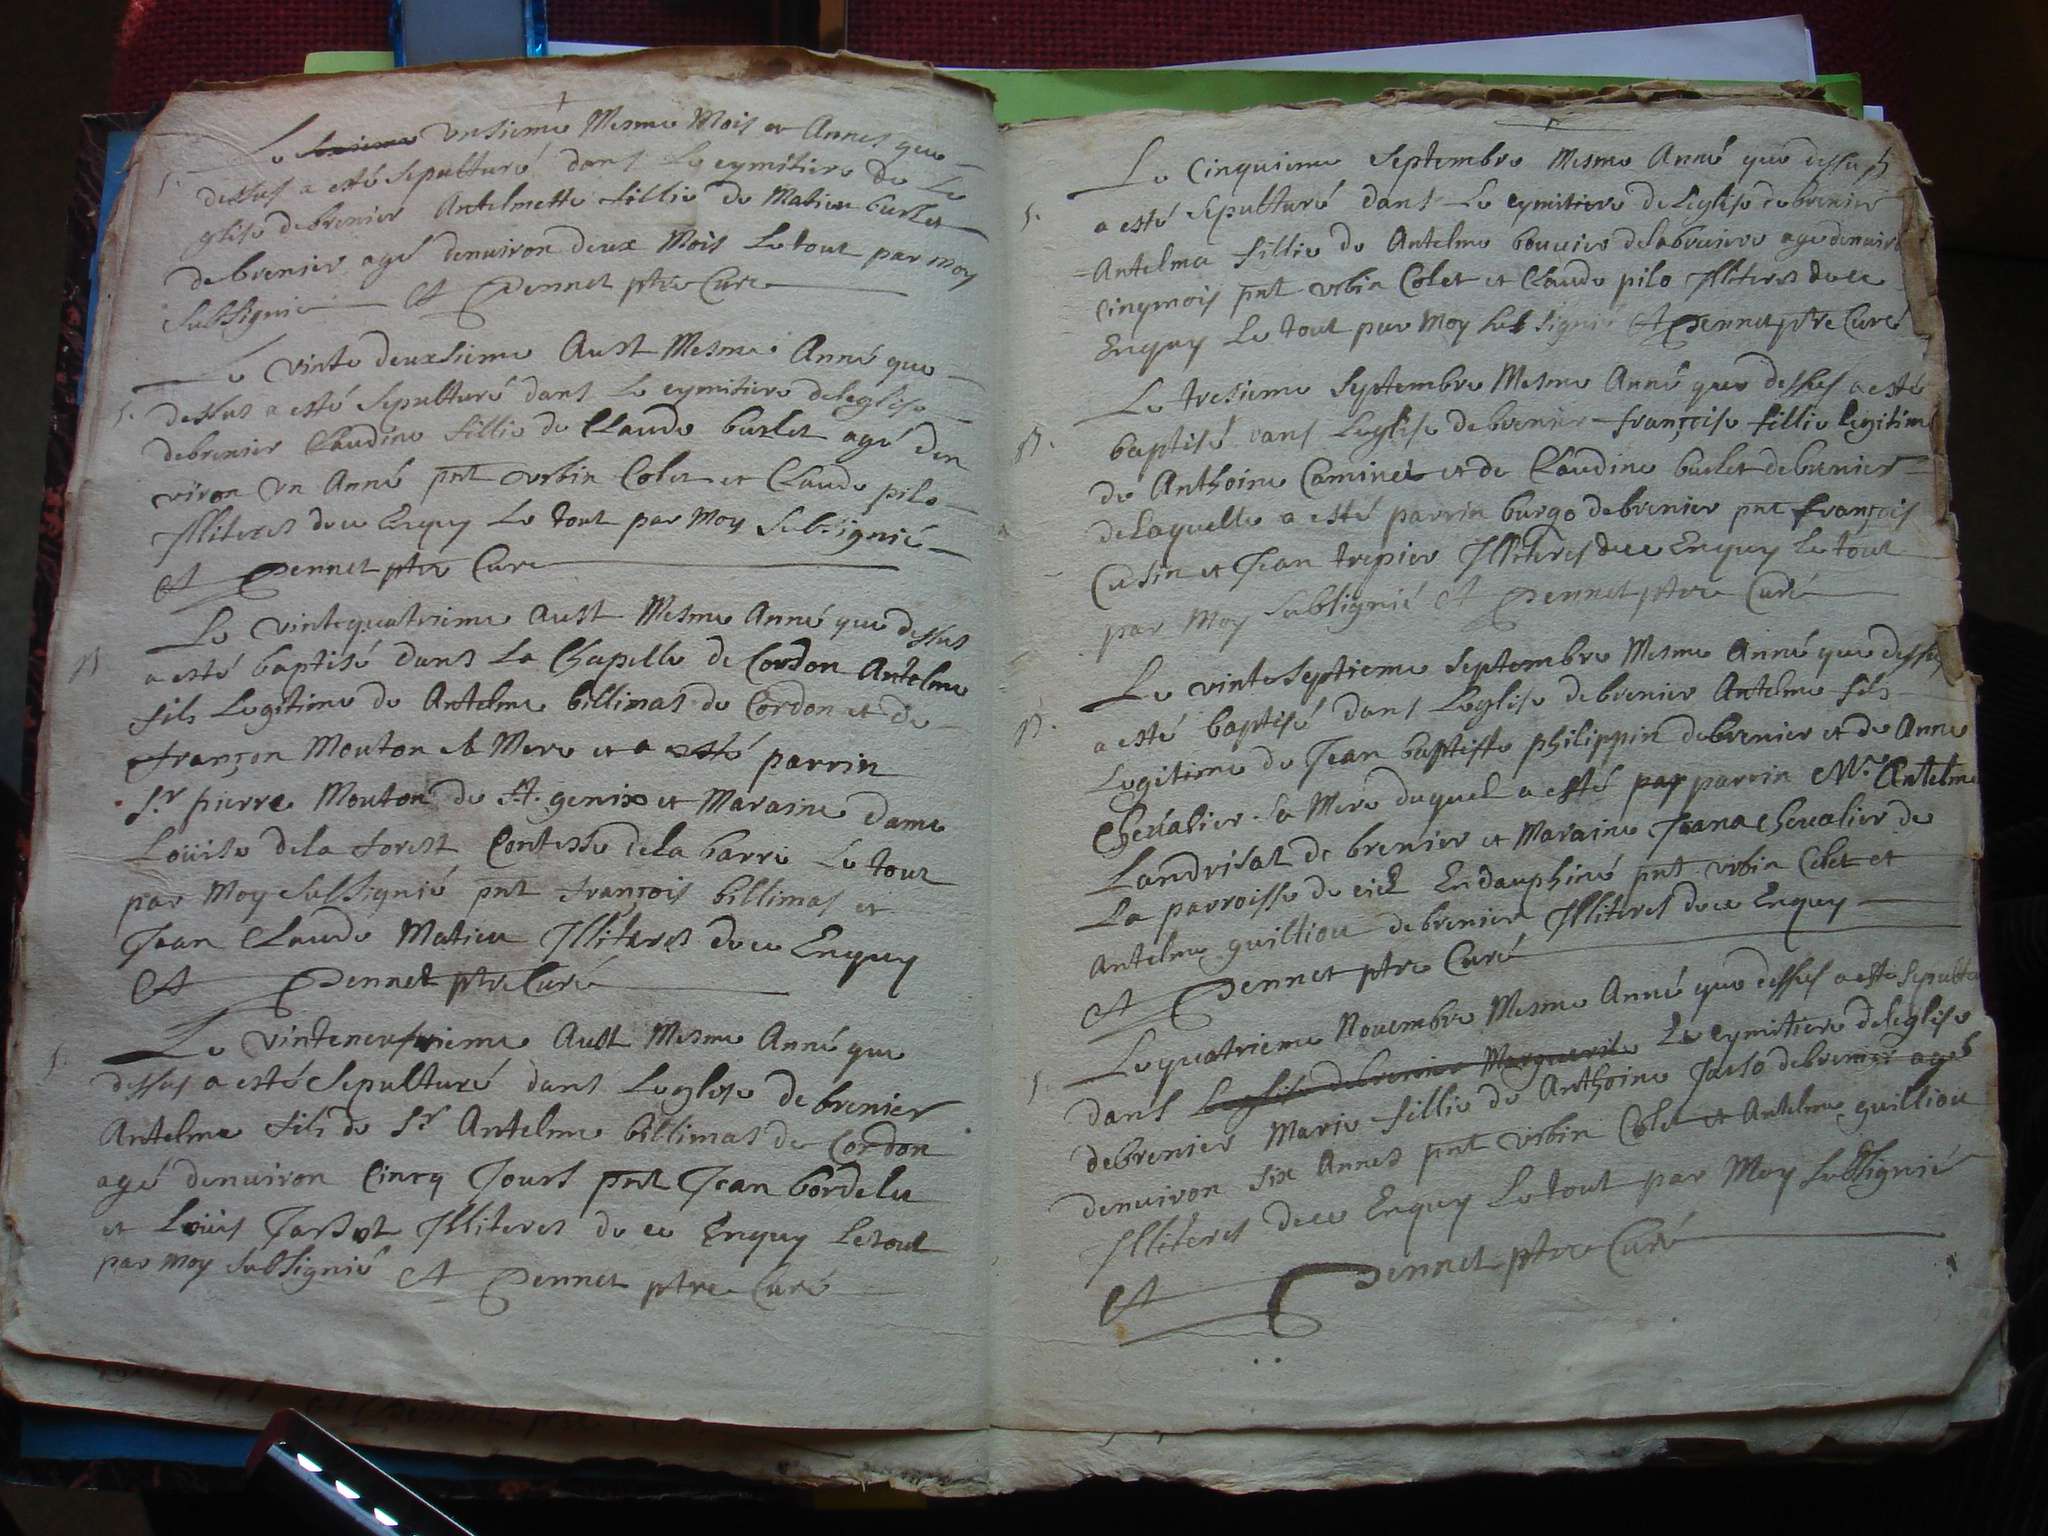 Le unsieme Mesme Mois et Annes que
S. dessus a esté sepulturé dans Le cymitiere de Le
glise de brenier Antelmette fillie de Matieu burlet
de brenier agé denuiron deux Mois Le tout par moy
subsignié A Pennet ptre Curé
Le vinte deuxsieme Aust Mesme Anné que
S. dessus a esté sepulturé dans Le cymitiere deleglise
debrenier Claudine fillie de Claude burlet agé den
viron vn Anné pnt vrbin Colet et Claude pilo
Illiteres de ce Enquy Le tout par Moy subsignié
A Pennet ptre Cure
Le vintequatrieme Aust Mesme Anné que dessus
B. a esté baptisé dans La Chapelle de Cordon Antelme
fils Legitime de Antelme billimas de Cordon et de
françon Mouton sa Mere et a esté parrin
Sr pierre Mouton de St. genix et Maraine dame
Loüise dela forest Contesse dela barre Le tout
par Moy subsignié pnt françois billimas et
Jean Claude Matieu Illiteres de ce Enquy
A Pennet ptre Curé
S. Le vinteneufuieme Aust Mesme Anné que
dessus a esté Sepulturé dans Leglise de brenier
Antelme fils de Sr Antelme billimas de Cordon
agé denuiron Cincq Jours pnt Jean bordelu
et Loüis Illiteres de ce Enquy Le tout
par Moy subsignié A Pennet ptre Curé
Le Cinquieme Septembre Mesme Anné que dessus
S. a esté sepulturé dans Le cymitiere de Leglise debrenier
Antelma fillie de Antelme bouuier delabruiere agé denuiro
cinqmois pnt vrbin Colet et Claude pilo Illiteres de ce
Enquy Le tout par Moy subsignié A Pennet ptre Curé
Le tresieme Septembre Mesme Anné que dessus a esté
B. baptisé dans Leglise debrenier françoise fillie legitime
de Anthoine Caminet et de Claudine burlet debrenier
delaquelle a esté parrin burgo debrenier pnt françois
Cusin et Jean trepier Illiteres de ce Enquy Le tout
par Moy subsignié A Pennet ptre Curé
Le vinteseptieme Septembre Mesme Anné que dessus
B. a esté baptisé dans Leglise debrenier Antelme fils
Legitime de Jean baptiste philippin debrenier et de Anne
Cheualier sa Mere duquel a esté par parrin Mre Antelme
Landrisat de brenier et Maraine Jeana Cheualier de
La parroisse de En dauphiné pnt vrbin Colet et
Antelme guilliou debrenier Illiteres de ce Enquy
A Pennet ptre Curé
Le quatrieme Nouembre Mesme Anné que dessus a esté sepultu
S. dans Leglise debrenier Marguerite Le cymitiere deleglise
debrenier Marie fillie de Anthoine debrenier agé
denuiron six Annes pnt vrbin Colet et Antelme guilliou
Illiteres de ce Enquy Le tout par Moy subsignié
A Pennet ptre Curé